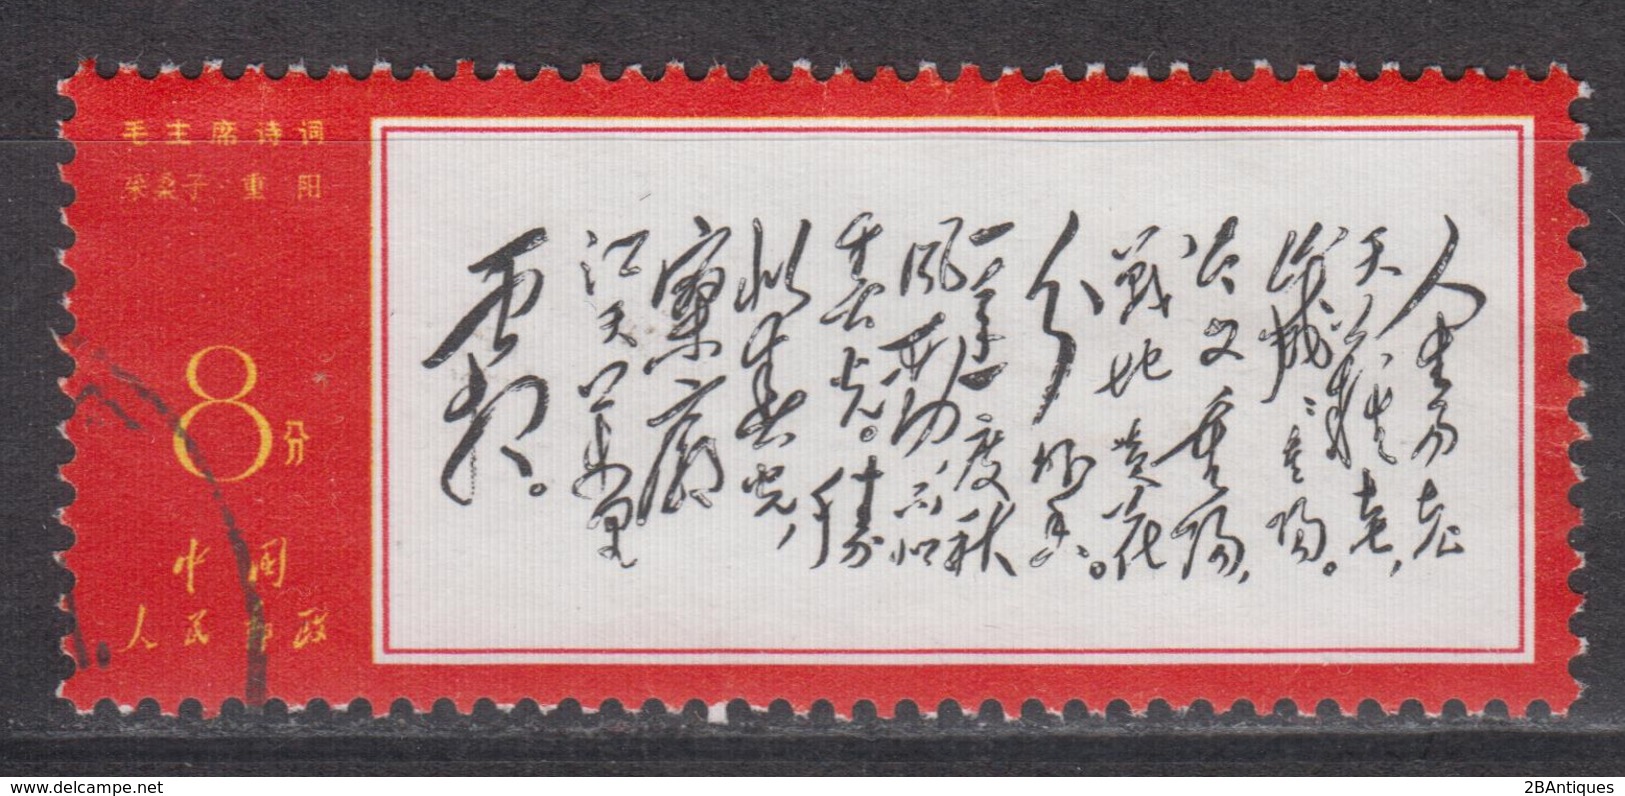 毛主席诗词
采桑子·重阳
8分
中国
人民邮政
人生易老
天難老,
歲歲重陽。
今又重陽,
戰地黃花
分外香。
一年一度秋
風勁,不似
春光。勝
似春光,
寥廓
江天萬里
霜。
delcampe.net
2BAntiques